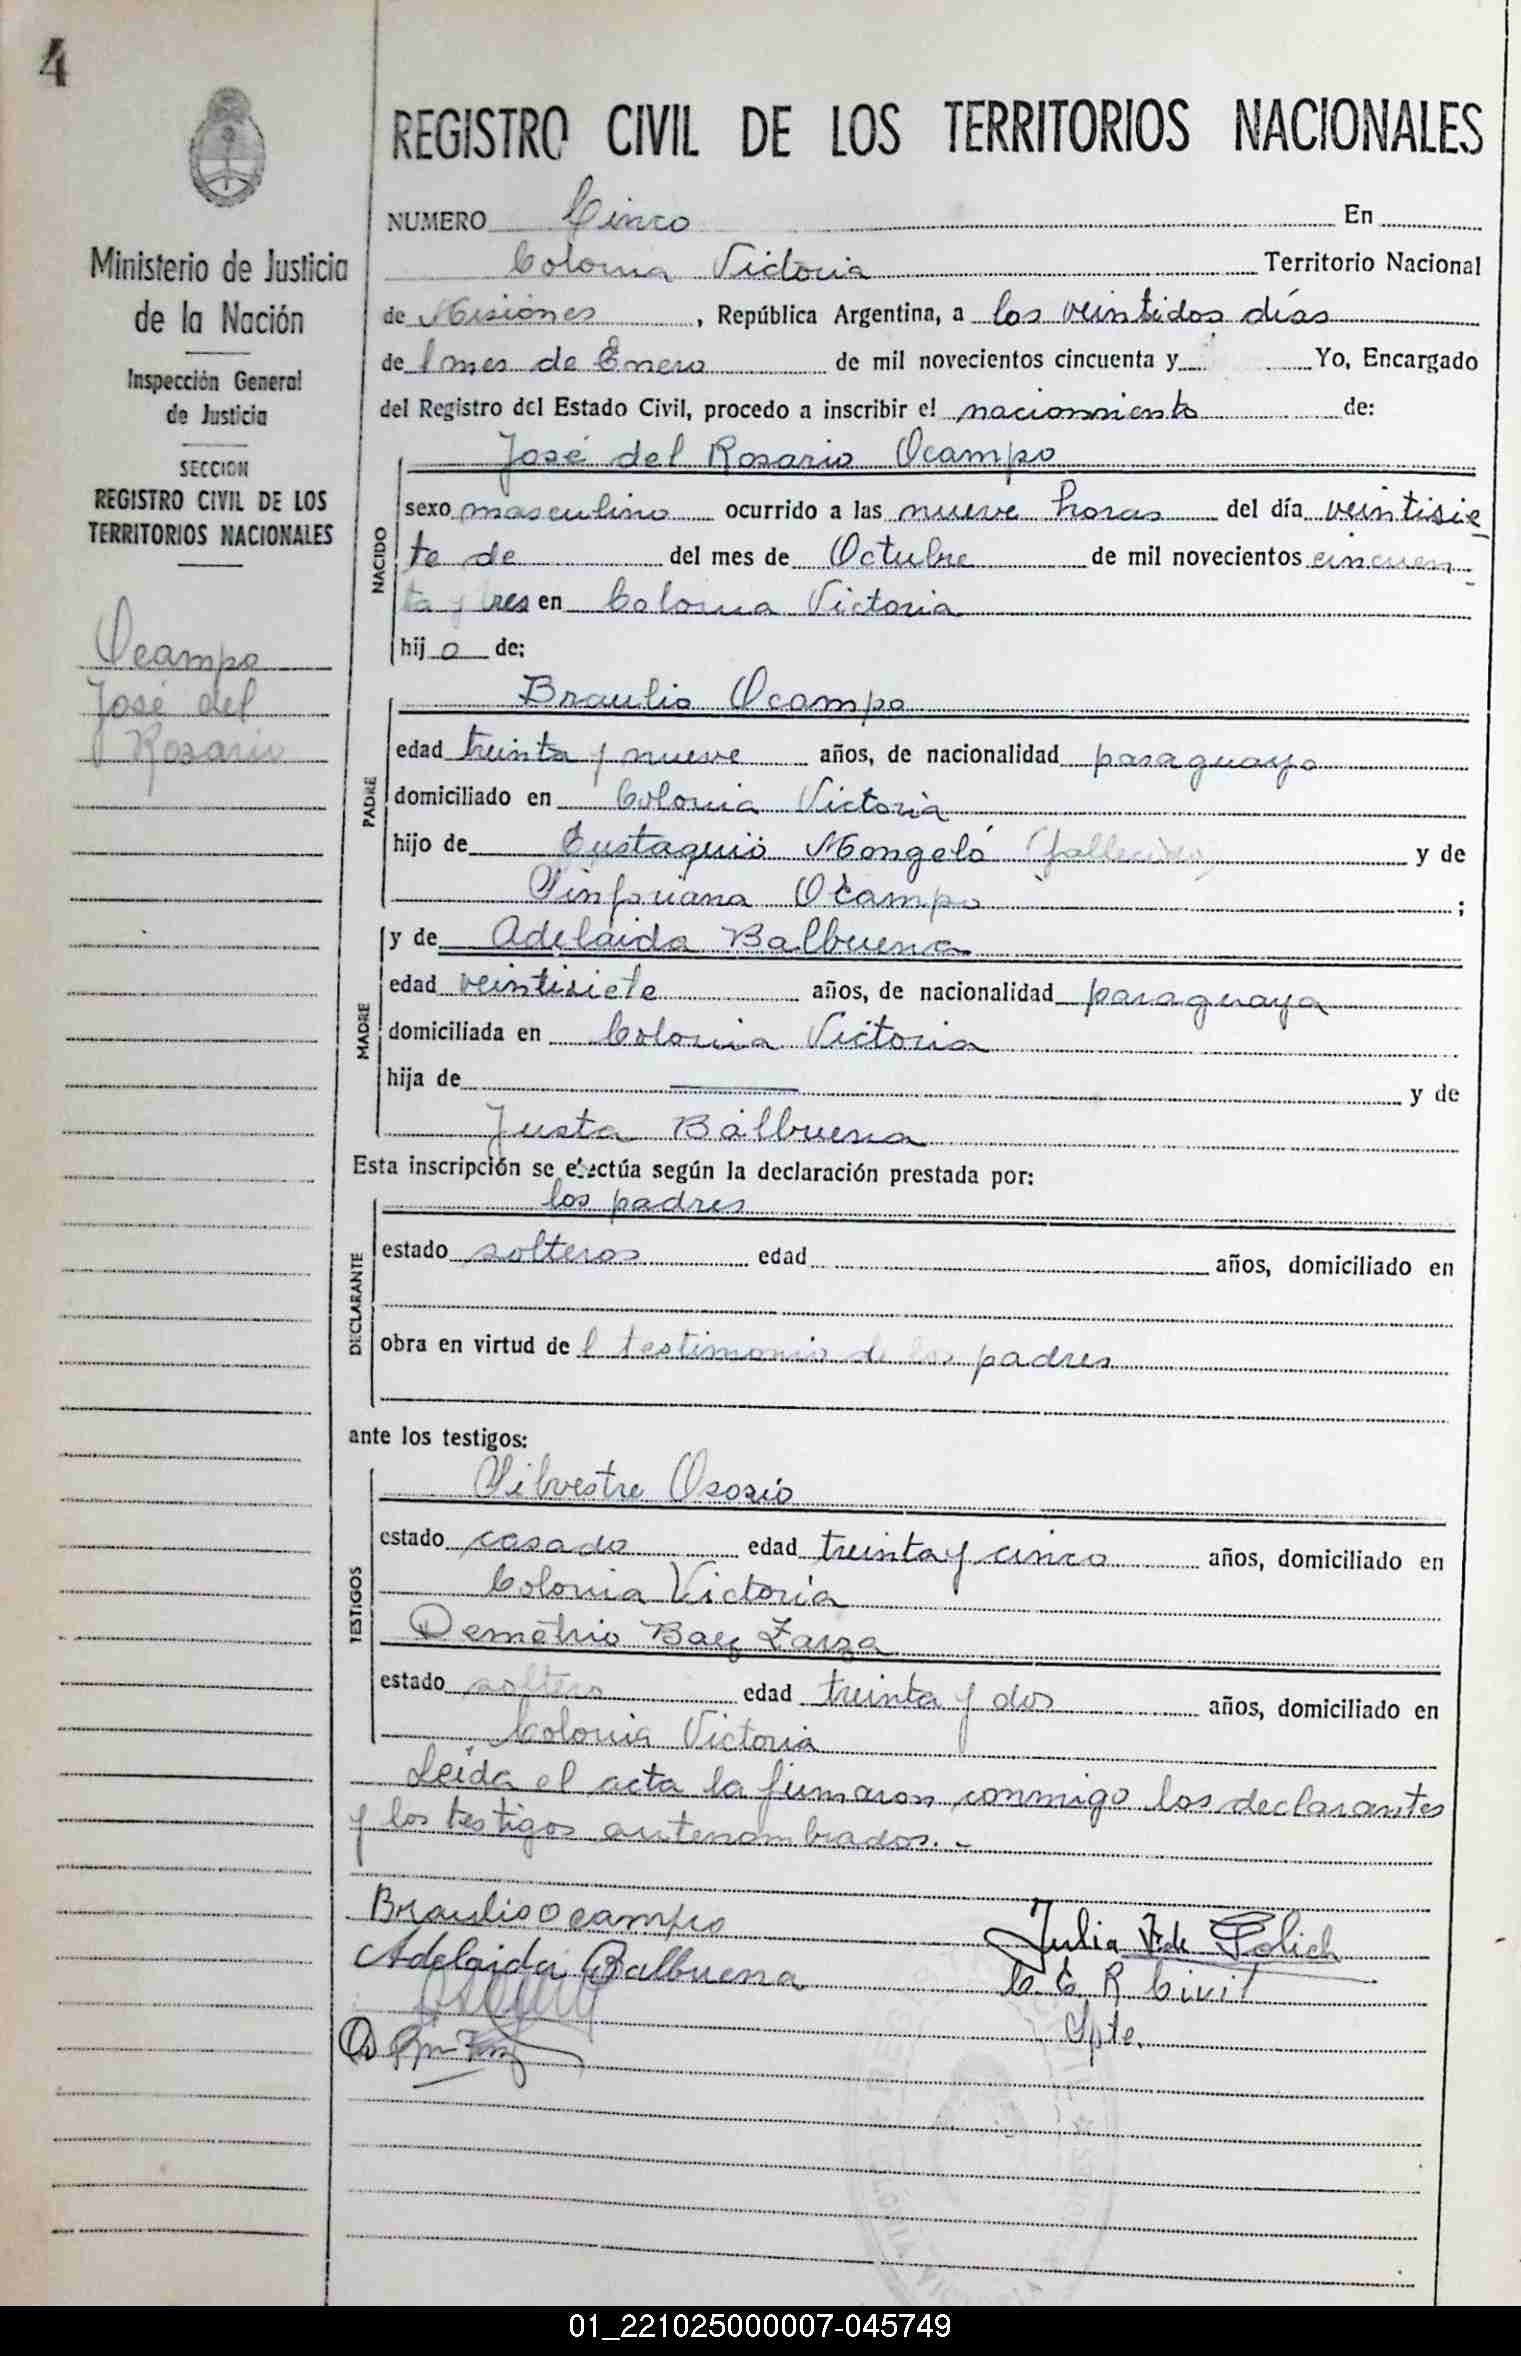 4
REGISTRO CIVIL DE LOS TERRITORIOS NACIONALES
Ministerio de Justicia
de la Nación
Inspección General
de Justicia
SECCION
REGISTRO CIVIL DE LOS
TERRITORIOS NACIONALES
Ocampo
José del
Rosario
NUMERO Cinco En
Colonia Victoria Territorio Nacional
de Misiones, República Argentina, a los veintidos días
del mes de Enero de mil novecientos cincuenta y Yo, Encargado
del Registro del Estado Civil, procedo a inscribir el nacimiento de:
José del Rosario Ocampo
NACIDO
sexo masculino ocurrido a las nueve horas del día veintisie
te de del mes de Octubre de mil novecientos cincuen-
ta y tres en Colonia Victoria
hijo de:
Braulio Ocampo
PADRE
edad treinta y nueve años, de nacionalidad paraguayo
domiciliado en Colonia Victoria
hijo de Eustaquio Mongeló (fallecido) y de
Sinforiana Ocampo ;
y de Adelaida Balbuena
MADRE
edad veintisiete años, de nacionalidad paraguaya
domiciliada en Colonia Victoria
hija de y de
Justa Balbuena
Esta inscripción se efectúa según la declaración prestada por:
los padres
DECLARANTE
estado solteros edad años, domiciliado en
obra en virtud del testimonio de los padres
ante los testigos:
Silvestre Osorio
TESTIGOS
estado casado edad treinta y cinco años, domiciliado en
Colonia Victoria
Demetrio Baez Zarza
estado soltero edad treinta y dos años, domiciliado en
Colonia Victoria
Leida el acta la firmaron conmigo los declarantes
y los testigos antenombrados.-
Braulio Ocampo
Julia V. de Polich
Adelaida Balbuena
E. R Civil
Spte.
01_221025000007-045749